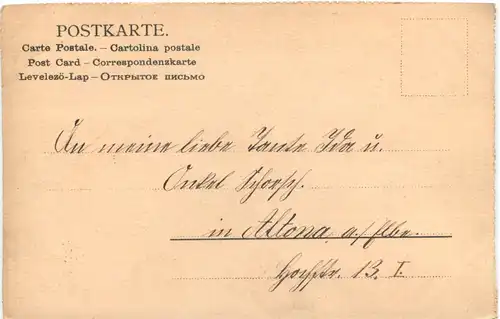 POSTKARTE.
Carte Postale. – Cartolina postale
Post Card – Correspondenzkarte
Levelező-Lap – Открытое письмо
An meine liebe Tante Ida u.
Onkel Schorsch.
in Altona a./Elbe.
13 I.